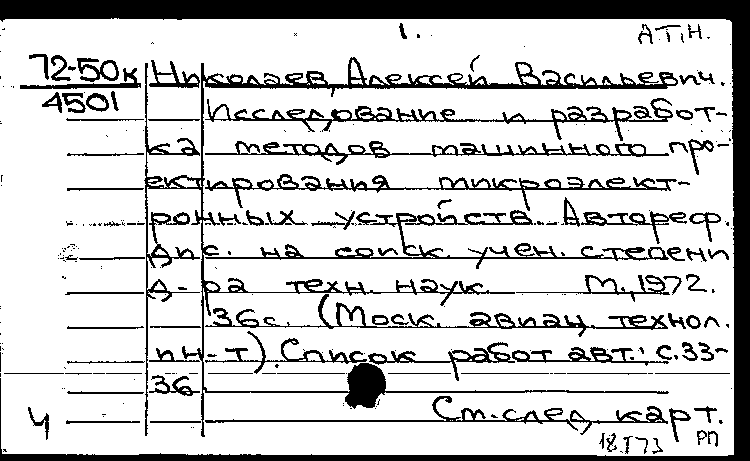 1.
АТ.Н.
72-50к Николаев, Алексей Васильевич.
4501
Исследование и разработ-
ка методов машинного про-
ектирования микроэлект-
ронных устройств. Автореф.
дис. на соиск. учен. степени
д-ра техн. наук. М., 1972.
36с. (Моск. авиац. технол.
ин-т). Список работ авт.: с.33-
36.
См. след. карт.
Ч
18.I 73 РП